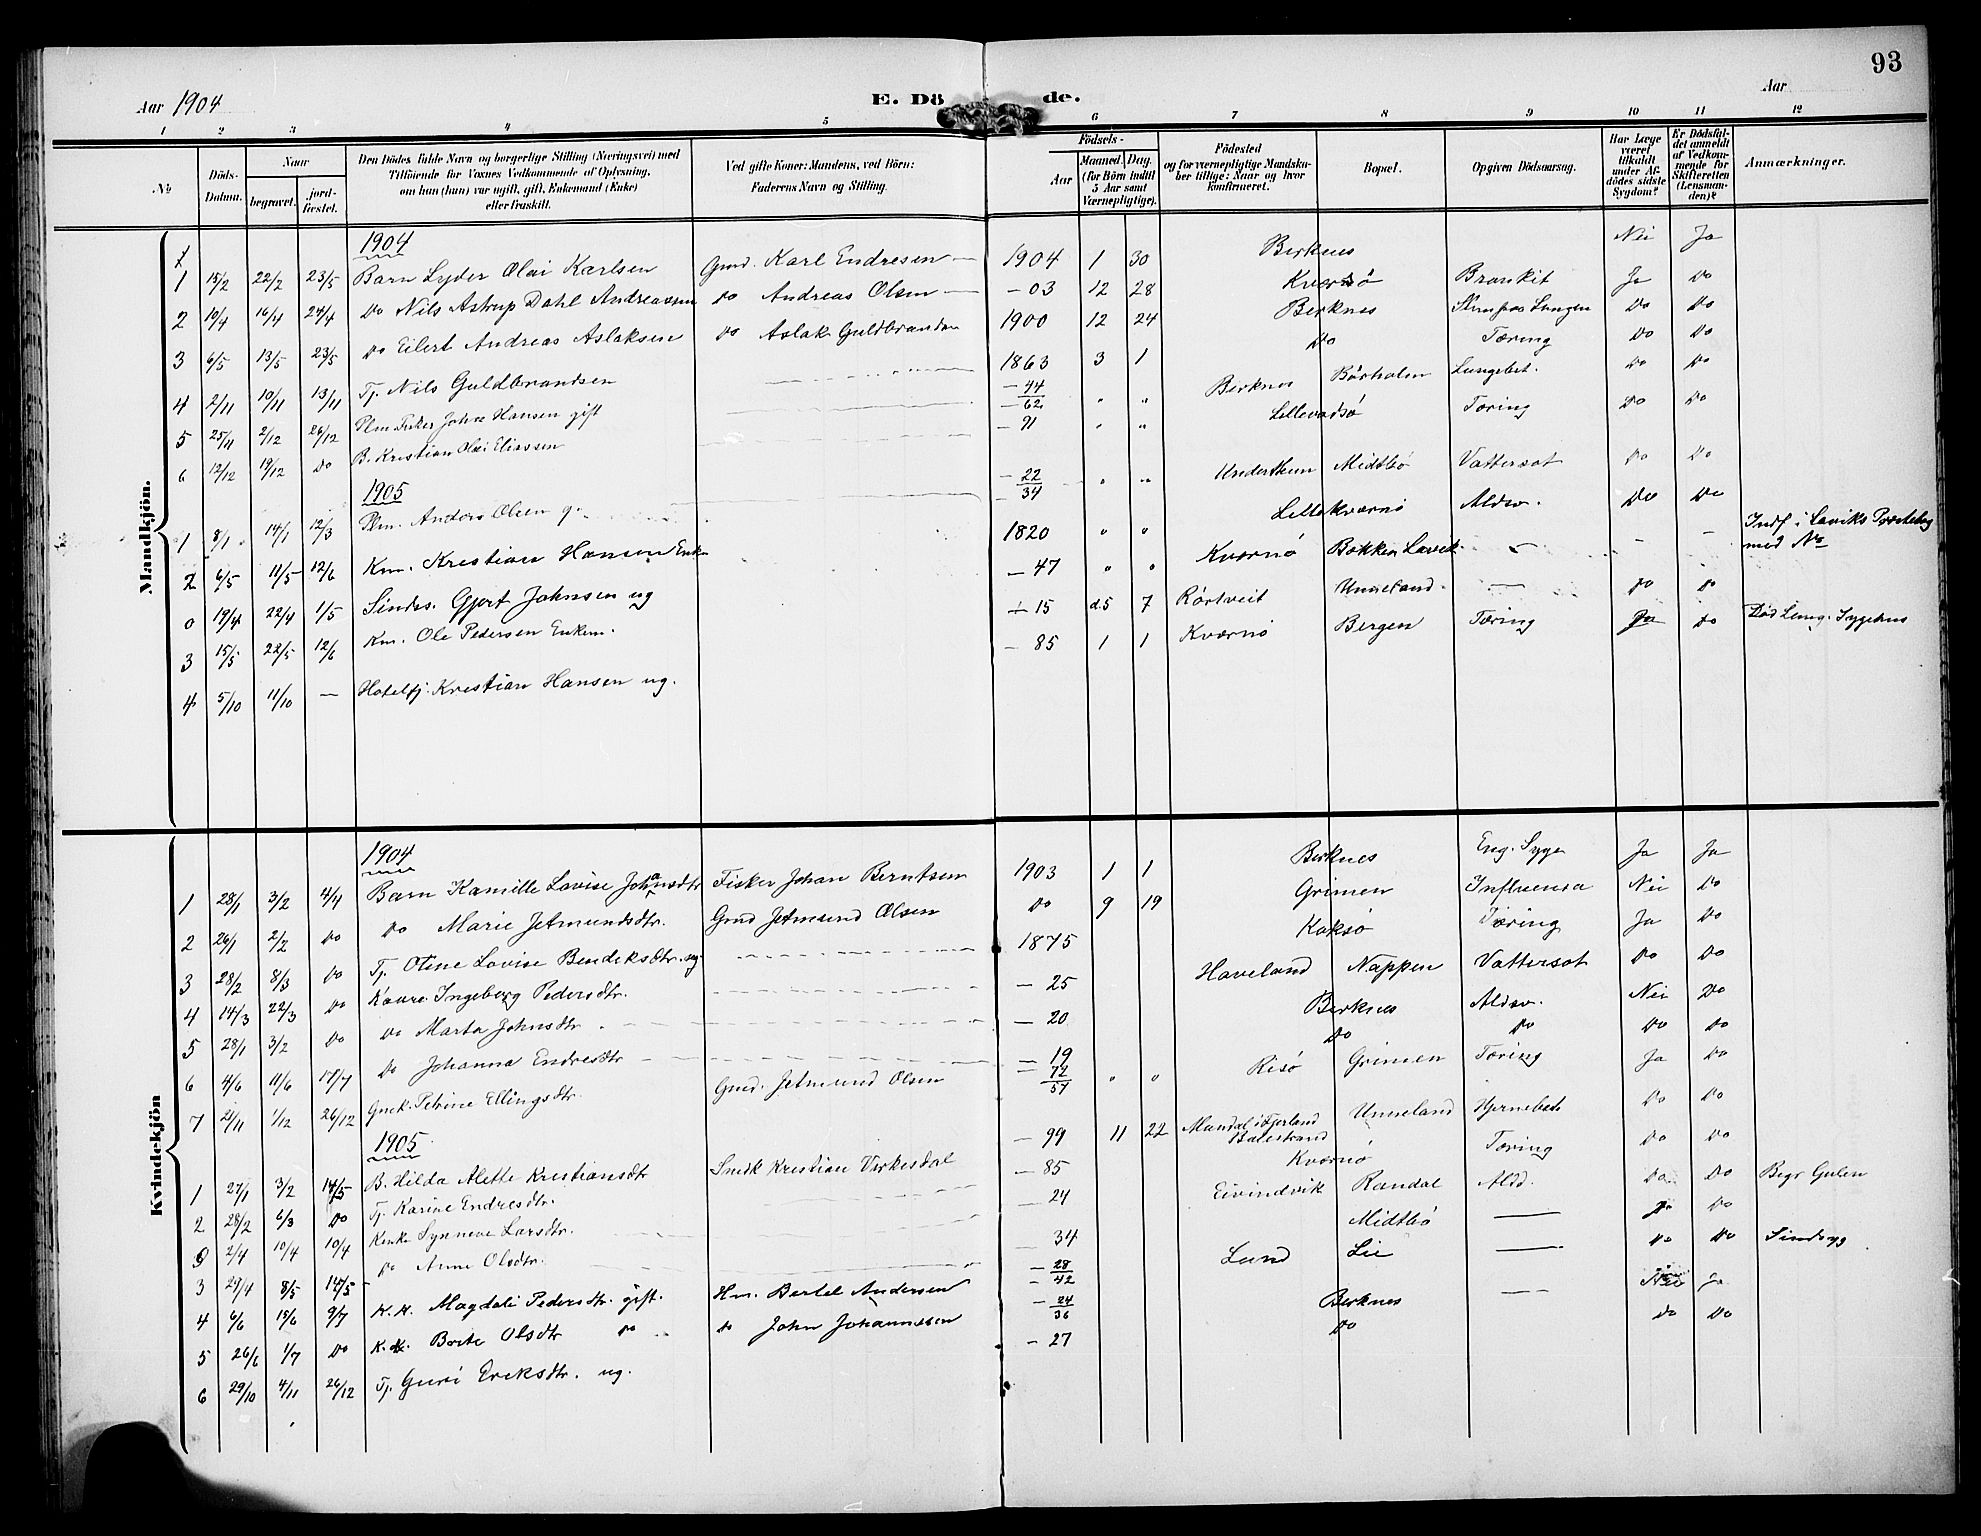 93
Aar 1904
E. Dö de.
Aar
1 2 3 4 5 6 7 8 9 10 11 12
No
Döds-Datum.
Naar
begravet.
jord-fæstet.
Den Dödes fulde Navn og borgerlige Stilling (Næringsvei) med Tilföiende for Voxnes Vedkommende af Oplysning, om han (hun) var ugift, gift, Enkemand (Enke) eller fraskilt.
Ved gifte Koner: Mandens, ved Börn: Faderens Navn og Stilling.
Födsels-
Aar
Maaned. Dag. (for Börn indtil 5 Aar samt Værnepligtige).
Födested og for værnepligtige Mandskaber tillige: Naar og hvor konfirmeret.
Bopæl.
Opgiven Dödsaarsag.
Har Læge været tilkaldt under Afdödes sidste Sygdom?
Er Dödsfaldet anmeldt af Vedkommende for Skifteretten (Lensmanden)?
Anmærkninger.
Mandkjön.
1904
1 15/2 22/2 23/5 Barn Lyder Olai Karlsen Gmd. Karl Endresen 1904 1 30 Berknes Nei Ja
2 10/4 16/4 24/4 Do Nils Astrup Dahl Andreassen Do Andreas Olsen - 03 12 28 Kværnø Bronkit Ja Do
3 6/5 13/5 23/5 Do Eilert Andreas Aslaksen Do Aslak Guldbrandsen 1900 12 24 Berknes Lungen Do Do
4 2/11 10/11 13/11 Tj. Nils Guldbrandsen 1863 3 1 Do Tæring Do Do
5 25/11 2/12 26/12 Plm. Fisker Johan Hansen gift - 44/62 " " Berknes Børholm Lungebet. Do Do
6 12/12 19/12 Do B. Kristian Olai Eliassen - 91 " " Lillevardsø Tæring Do Do
1905
1 8/1 14/1 12/3 Plm. Anders Olsen g. - 22/34 " " Undertun Midtbø Vattersot Do Do
2 6/5 11/5 12/6 Km. Kristian Hansen Enkm 1820 " " Lille kværnø Aldsv. Do Do
0 19/4 22/4 1/5 Sindss. Gjert Johnsen ug - 47 " " Kværnø Bakken Lavik - - - Indf i Laviks Præstebog med No
3 15/5 22/5 12/6 Km. Ole Pedersen Enkem. - 15 d.5 7 Rørtveit Unneland. — Do Do
4 5/10 11/10 — Hotelkj. Kristian Hansen ug. - 85 1 1 Kværnø Bergen Tæring Ja Do Død Lung. Sygehus
Kvindekjön
1904
1 28/1 3/2 4/4 Barn Kamille Lovise Johansdtr Fisker Johan Berntsen 1903 1 1 Berknes Eng. Syge Ja Ja
2 26/1 2/2 Do Do Marie Jetmundsdtr. Gmd Jetmund Olsen Do 9 19 Grimen Influensa Nei Do
3 28/2 8/3 Do Tj. Oline Lovise Bendiksdtr. ug. 1875 Koksø Tæring Ja Do
4 14/3 22/3 Do Kaare. Ingeborg Pedersdtr. - 25 Haveland Nappen Vattersot Do Do
5 28/1 3/2 Do Do Marta Johnsdtr. - 20 Berknes Aldsv. Nei Do
6 4/6 11/6 17/7 Do Johanna Endresdtr - 19 Do Do Do Do
7 21/11 1/12 26/12 Gmek. Petrine Ellingsdtr. Gmd. Jetmund Olsen - 72/57 " " Risø Grimen Tæring Ja Do
1905
1 27/1 3/2 14/5 B. Hilda Alette Kristiansdtr Smedk Kristian Virkesdal - 99 11 22 Mundal i Fjerland Balestrand Unneland Hjernebet. Do Do
2 28/2 6/3 Do Tj. Karine Endresdtr. - 85 Kværnø Tæring Do Do
0 2/4 10/4 10/4 Kenke Synneve Larsdtr. - 24 Eivindvik Randal Aldd. Do Do Begr Gulen
3 29/4 8/5 14/5 Do Anne Olsdtr. - 34 Midtbø — Ja Do
4 6/6 15/6 9/7 K.K. Magdeli Pedersdtr. gift. Hm. Bertel Andersen - 28/42 Lund Lie — Do Do Sindsyg
5 26/6 1/7 Do K.K. Brite Olsdtr Do Do John Johannessen - 24/36 Berknes — Nei Ja
6 29/10 4/11 26/12 Tj. Guri Eriksdtr. ug. - 27 Do Do Do